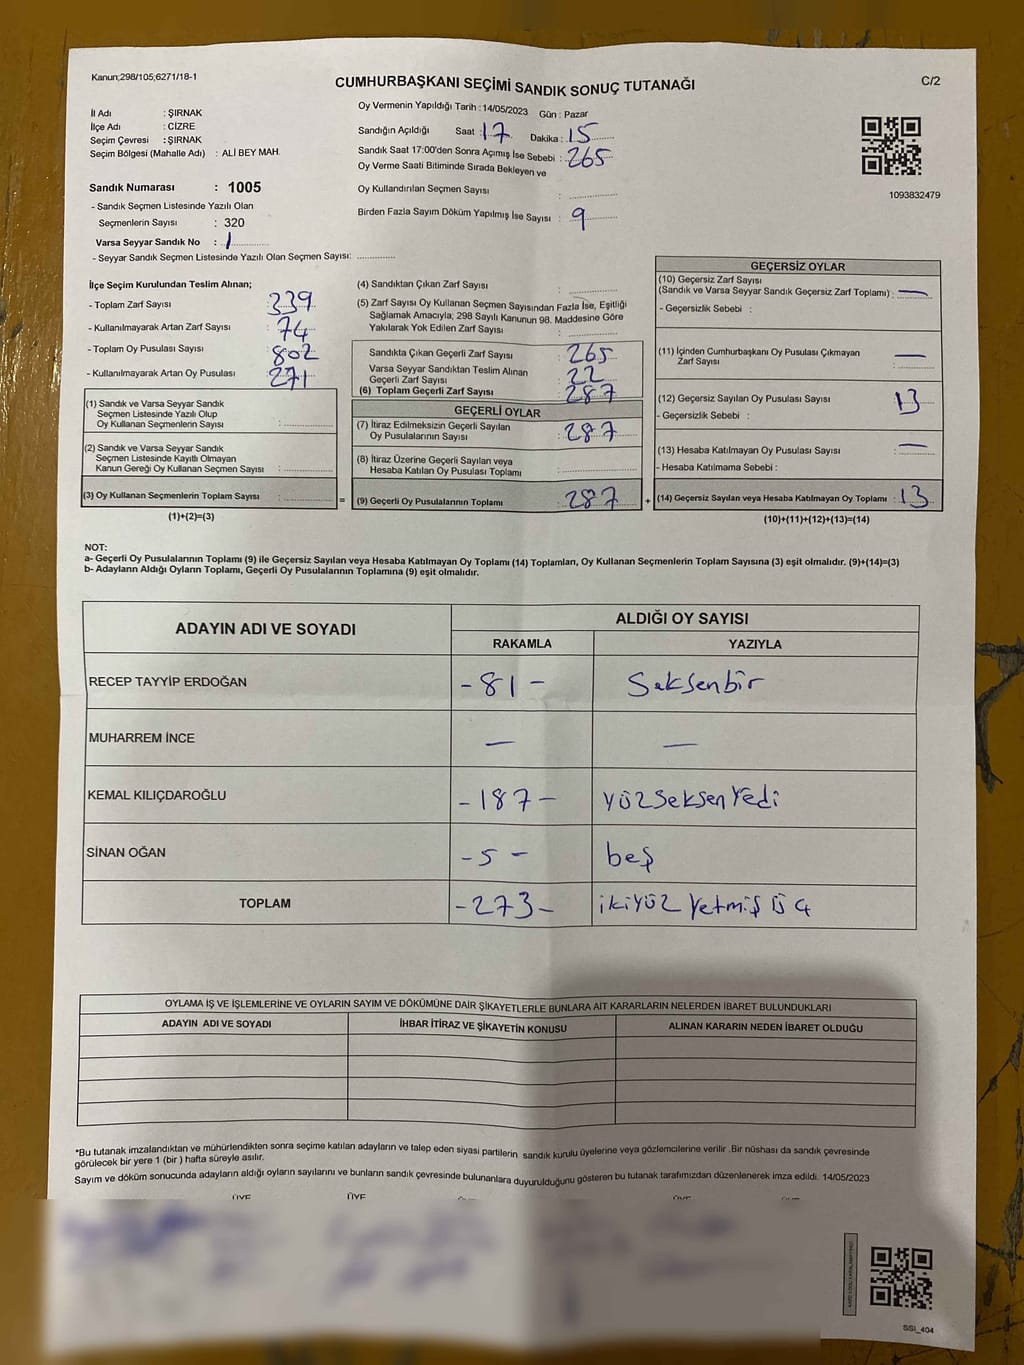 Kanun;298/105;6271/18-1
CUMHURBAŞKANI SEÇİMİ SANDIK SONUÇ TUTANAĞI
C/2
İl Adı : ŞIRNAK
İlçe Adı : CİZRE
Seçim Çevresi : ŞIRNAK
Seçim Bölgesi (Mahalle Adı) : ALİ BEY MAH.
Sandık Numarası : 1005
- Sandık Seçmen Listesinde Yazılı Olan
Seçmenlerin Sayısı : 320
Varsa Seyyar Sandık No : 1
- Seyyar Sandık Seçmen Listesinde Yazılı Olan Seçmen Sayısı:
Oy Vermenin Yapıldığı Tarih : 14/05/2023 Gün : Pazar
Sandığın Açıldığı Saat : 17 Dakika : 15
Sandık Saat 17:00'den Sonra Açımış İse Sebebi : 265
Oy Verme Saati Bitiminde Sırada Bekleyen ve
Oy Kullandırılan Seçmen Sayısı :
Birden Fazla Sayım Döküm Yapılmış İse Sayısı : 9
1093832479
İlçe Seçim Kurulundan Teslim Alınan;
- Toplam Zarf Sayısı : 339
- Kullanılmayarak Artan Zarf Sayısı : 74
- Toplam Oy Pusulası Sayısı : 802
- Kullanılmayarak Artan Oy Pusulası : 271
(1) Sandık ve Varsa Seyyar Sandık
Seçmen Listesinde Yazılı Olup
Oy Kullanan Seçmenlerin Sayısı :
(2) Sandık ve Varsa Seyyar Sandık
Seçmen Listesinde Kayıtlı Olmayan
Kanun Gereği Oy Kullanan Seçmen Sayısı :
(3) Oy Kullanan Seçmenlerin Toplam Sayısı :
(1)+(2)=(3)
=
(4) Sandıktan Çıkan Zarf Sayısı :
(5) Zarf Sayısı Oy Kullanan Seçmen Sayısından Fazla İse, Eşitliği
Sağlamak Amacıyla; 298 Sayılı Kanunun 98. Maddesine Göre
Yakılarak Yok Edilen Zarf Sayısı :
Sandıkta Çıkan Geçerli Zarf Sayısı : 265
Varsa Seyyar Sandıktan Teslim Alınan
Geçerli Zarf Sayısı : 22
(6) Toplam Geçerli Zarf Sayısı : 287
GEÇERLİ OYLAR
(7) İtiraz Edilmeksizin Geçerli Sayılan
Oy Pusulalarının Sayısı : 287
(8) İtiraz Üzerine Geçerli Sayılan veya
Hesaba Katılan Oy Pusulası Toplamı :
(9) Geçerli Oy Pusulalarının Toplamı : 287
+
GEÇERSİZ OYLAR
(10) Geçersiz Zarf Sayısı
(Sandık ve Varsa Seyyar Sandık Geçersiz Zarf Toplamı) : —
- Geçersizlik Sebebi :
(11) İçinden Cumhurbaşkanı Oy Pusulası Çıkmayan
Zarf Sayısı : —
(12) Geçersiz Sayılan Oy Pusulası Sayısı : 13
- Geçersizlik Sebebi :
(13) Hesaba Katılmayan Oy Pusulası Sayısı : —
- Hesaba Katılmama Sebebi :
(14) Geçersiz Sayılan veya Hesaba Katılmayan Oy Toplamı : 13
(10)+(11)+(12)+(13)=(14)
NOT:
a- Geçerli Oy Pusulalarının Toplamı (9) ile Geçersiz Sayılan veya Hesaba Katılmayan Oy Toplamı (14) Toplamları, Oy Kullanan Seçmenlerin Toplam Sayısına (3) eşit olmalıdır. (9)+(14)=(3)
b- Adayların Aldığı Oyların Toplamı, Geçerli Oy Pusulalarının Toplamına (9) eşit olmalıdır.
ADAYIN ADI VE SOYADI
ALDIĞI OY SAYISI
RAKAMLA YAZIYLA
RECEP TAYYİP ERDOĞAN - 81 - Seksenbir
MUHARREM İNCE — —
KEMAL KILIÇDAROĞLU - 187 - yüzseksenyedi
SİNAN OĞAN - 5 - beş
TOPLAM - 273 - ikiyüz yetmiş üç
OYLAMA İŞ VE İŞLEMLERİNE VE OYLARIN SAYIM VE DÖKÜMÜNE DAİR ŞİKAYETLERLE BUNLARA AİT KARARLARIN NELERDEN İBARET BULUNDUKLARI
ADAYIN ADI VE SOYADI İHBAR İTİRAZ VE ŞİKAYETİN KONUSU ALINAN KARARIN NEDEN İBARET OLDUĞU
*Bu tutanak imzalandıktan ve mühürlendikten sonra seçime katılan adayların ve talep eden siyasi partilerin sandık kurulu üyelerine veya gözlemcilerine verilir .Bir nüshası da sandık çevresinde
görülecek bir yere 1 (bir ) hafta süreyle asılır.
Sayım ve döküm sonucunda adayların aldığı oyların sayılarını ve bunların sandık çevresinde bulunanlara duyurulduğunu gösteren bu tutanak tarafımızdan düzenlenerek imza edildi. 14/05/2023
ÜYE ÜYE ÜYE
SSI_404